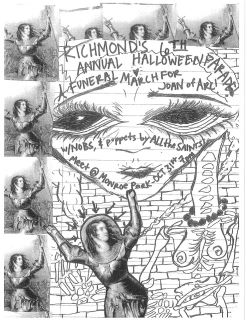 RICHMOND'S 6TH
ANNUAL HALLOWEEN PARADE
A FUNERAL MARCH FOR
JOAN of ARC
W/NOBS, & PUPPETS by ALL the SAINTS!
MEET @ MONROE PARK OCT 31st 7PM